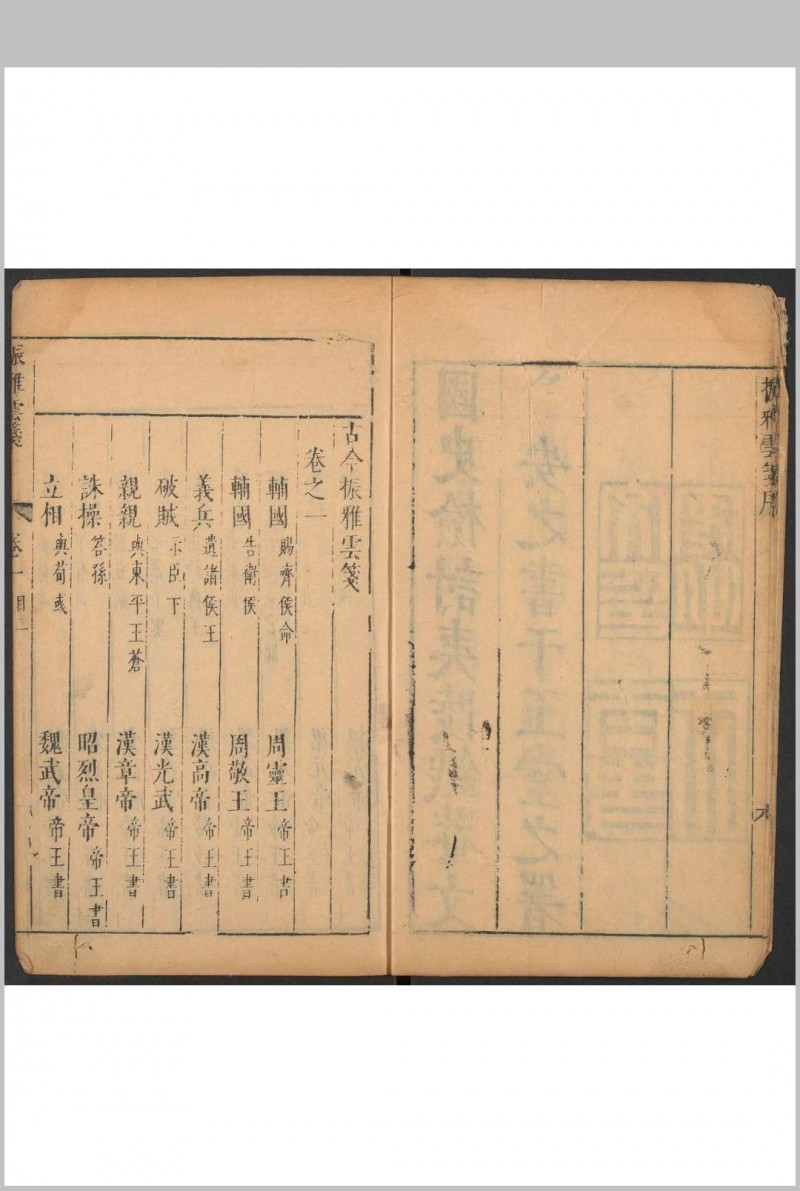 振雅雲箋序
六
古今振雅雲箋
卷之一
輔國 賜齊侯命 周靈王 帝王書
輔國 告衛侯 周敬王 帝王書
義兵 遺諸侯王 漢高帝 帝王書
破賊 示臣下 漢光武 帝王書
親親 與東平王蒼 漢章帝 帝王書
誅操 答孫 昭烈皇帝 帝王書
立相 與荀彧 魏武帝 帝王書
振雅雲箋 卷一 目一